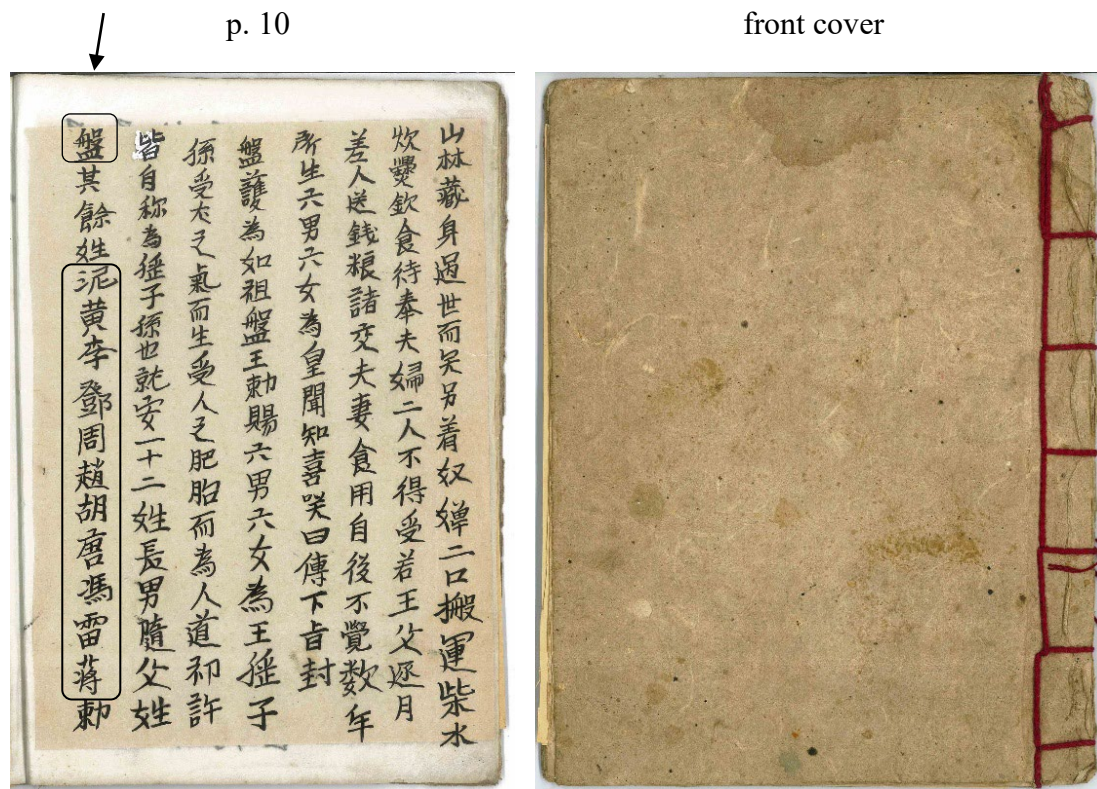 p. 10
front cover
山林藏身過世而矣另着奴婢二口搬運柴水
炊爨飲食待奉夫婦二人不得受若王父逐月
差人送錢粮諸交夫妻食用自後不覺数年
所生六男六女為皇聞知喜咲曰傳下旨封
盤護為始祖盤王勅賜六男六女為王猺子
孫受犬之氣而生受人之肥胎而為人道礽許
皆自称為猺子孫也就安一十二姓長男隨父姓
盤其餘姓泥黃李鄧周趙胡唐馮雷蔣勅